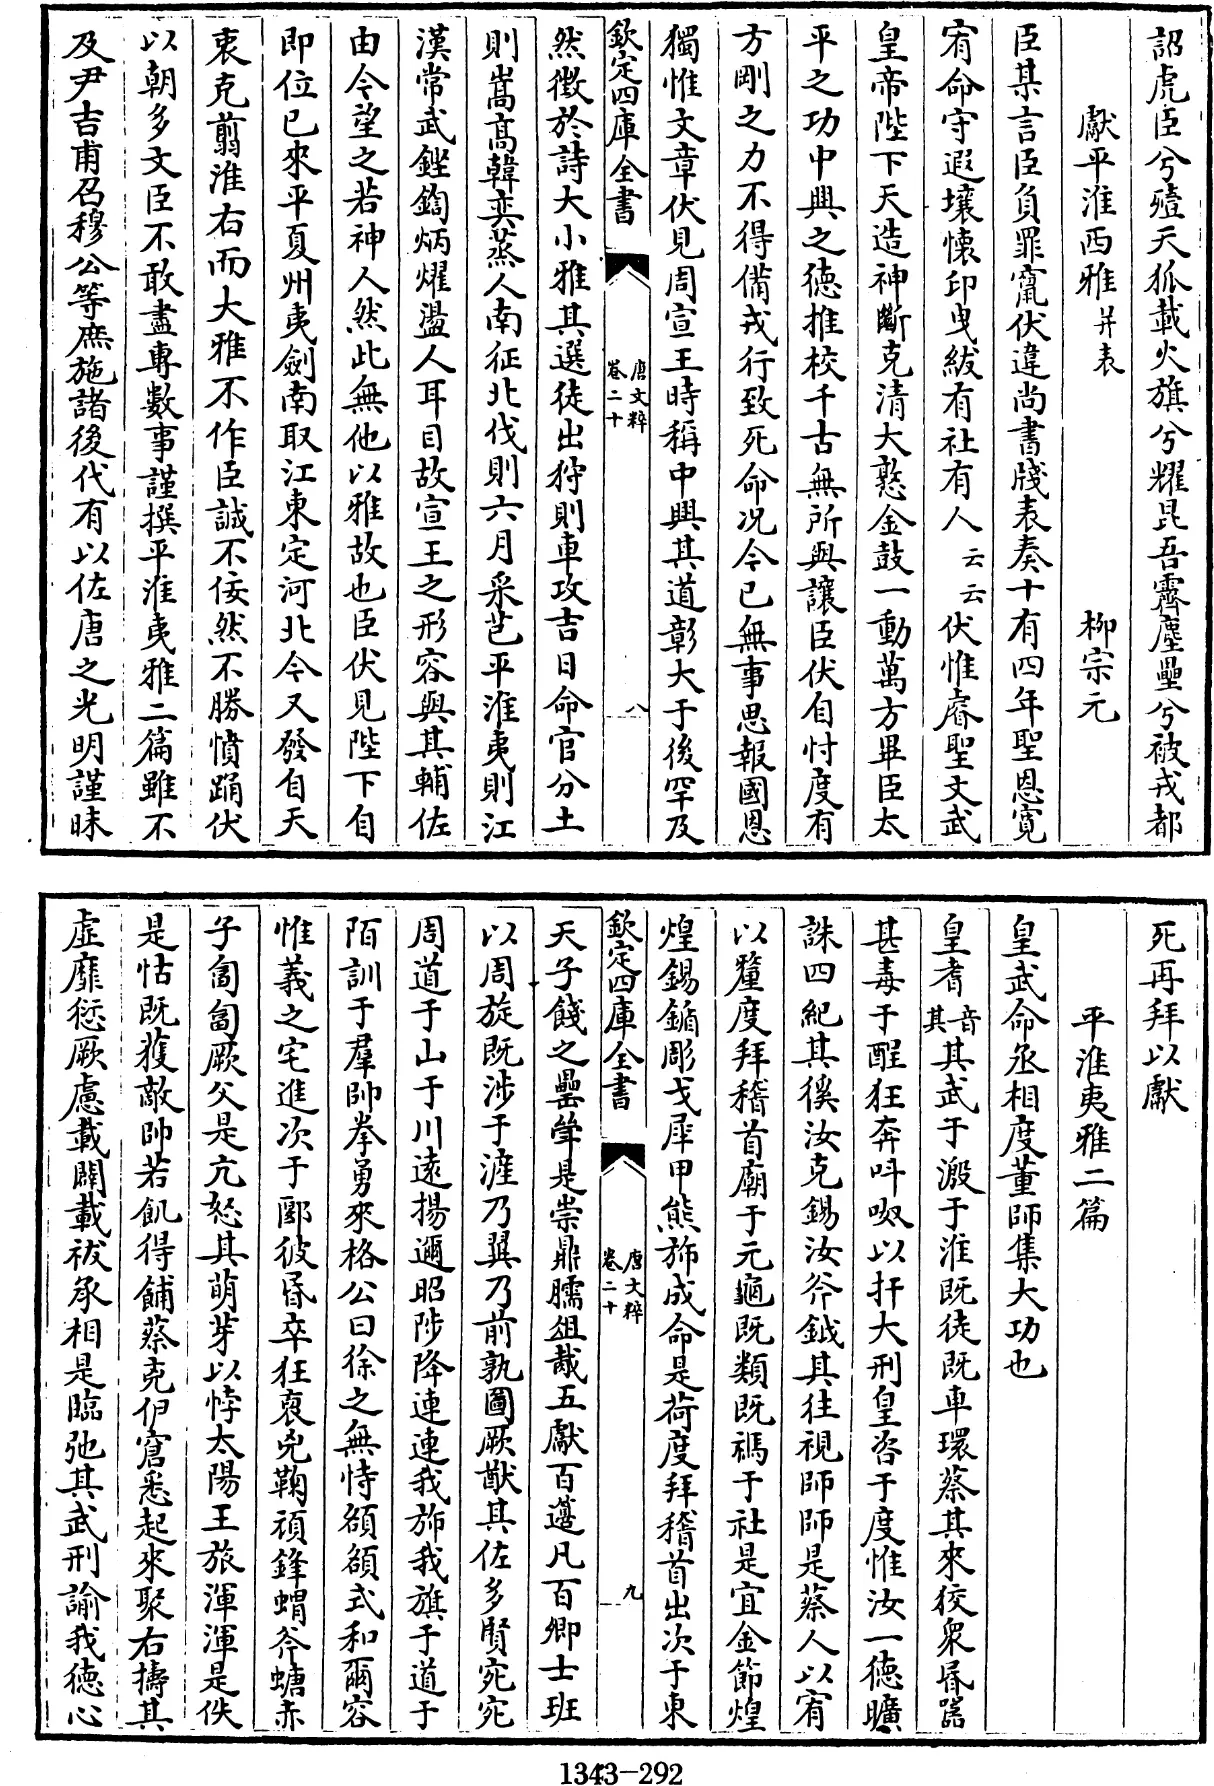 詔虎臣兮殪天狐載火旗兮耀昆吾霽塵壘兮被戎都
獻平淮西雅并表 柳宗元
臣某言臣負罪竄伏違尚書牋表奏十有四年聖恩寬
宥命守遐壤懐印曳紱有社有人云云伏惟睿聖文武
皇帝陛下天造神斷克清大憝金鼓一動萬方畢臣太
平之功中興之德推校千古無所與讓臣伏自忖度有
方剛之力不得備戎行致死命况今已無事思報國恩
獨惟文章伏見周宣王時稱中興其道彰大于後罕及
欽定四庫全書
唐文粹
卷二十
八
然徵於詩大小雅其選徒出狩則車攻吉日命官分土
則嵩髙韓奕蒸人南征北伐則六月采芑平淮夷則江
漢常武鏗鍧炳燿盪人耳目故宣王之形容與其輔佐
由今望之若神人然此無他以雅故也臣伏見陛下自
即位已來平夏州夷劍南取江東定河北今又發自天
衷克翦淮右而大雅不作臣誠不佞然不勝憤踊伏
以朝多文臣不敢盡專數事謹撰平淮夷雅二篇雖不
及尹吉甫召穆公等庶施諸後代有以佐唐之光明謹昧
死再拜以獻
平淮夷雅二篇
皇武命丞相度董師集大功也
皇耆音其其武于溵于淮既徒既車環蔡其來狡衆昬嚚
甚毒于酲狂奔叫呶以扞大刑皇咨于度惟汝一德曠
誅四紀其徯汝克錫汝斧鉞其往視師師是蔡人以宥
以釐度拜稽首廟于元龜既類既禡于社是宜金節煌
煌錫盾彫戈犀甲熊斾成命是荷度拜稽首出次于東
欽定四庫全書
唐文粹
卷二十
九
天子餞之罍斝是崇鼎臑俎胾五獻百籩凡百卿士班
以周旋既涉于滻乃翼乃前孰圖厥猷其佐多賢宛宛
周道于山于川遠揚邇昭陟降連連我斾我旗于道于
陌訓于羣帥拳勇來格公曰徐之無恃頟頟式和爾容
惟義之宅進次于郾彼昬卒狂裒兇鞠頑鋒蝟斧螗赤
子匍匐厥父是亢怒其萌芽以悖太陽王旅渾渾是佚
是怙既獲敵帥若飢得餔蔡克伊窘悉起來聚右擣其
虛靡愆厥慮載闢載祓丞相是臨弛其武刑諭我德心
1343-292